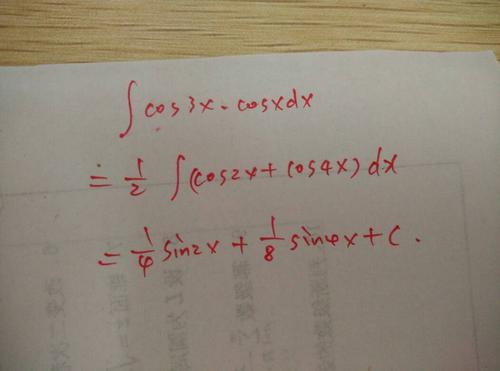 ∫ cos3x · cosx dx
= 1/2 ∫ (cos2x + cos4x) dx
= 1/4 sin2x + 1/8 sin4x + C .